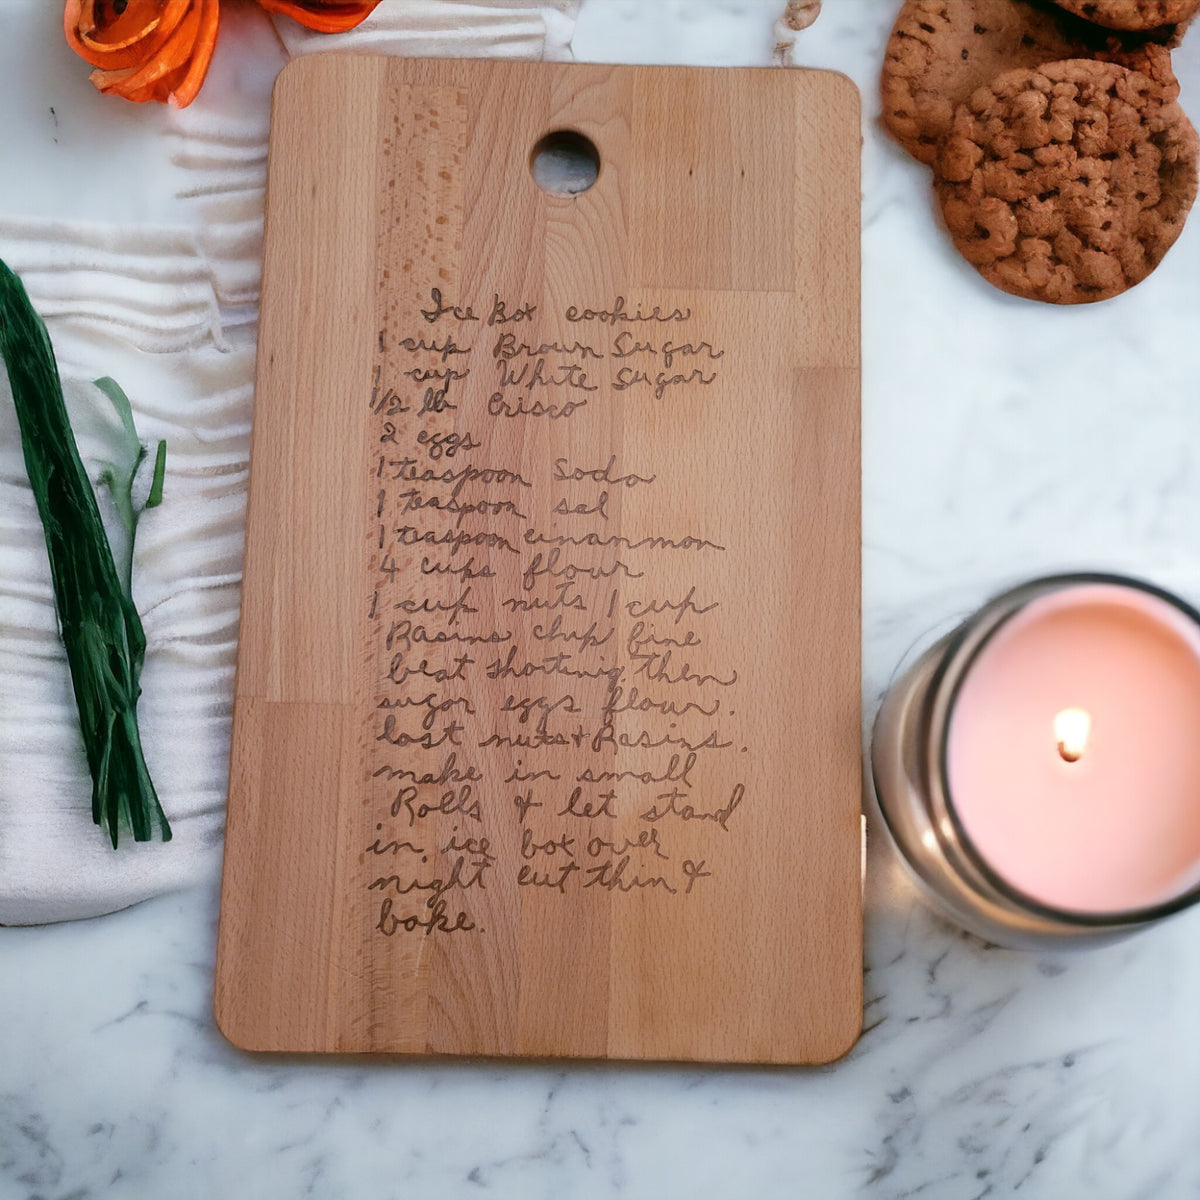 Ice Box cookies
1 cup Brown Sugar
1 cup White Sugar
1/2 lb Crisco
2 eggs
1 teaspoon Soda
1 teaspoon sal
1 teaspoon cinanmon
4 cups flour
1 cup nuts 1 cup
Rasins chup fine
beat shorting then
sugar eggs flour.
last nuts & Rasins.
make in small
Rolls & let stand
in ice box over
night cut thin &
bake.